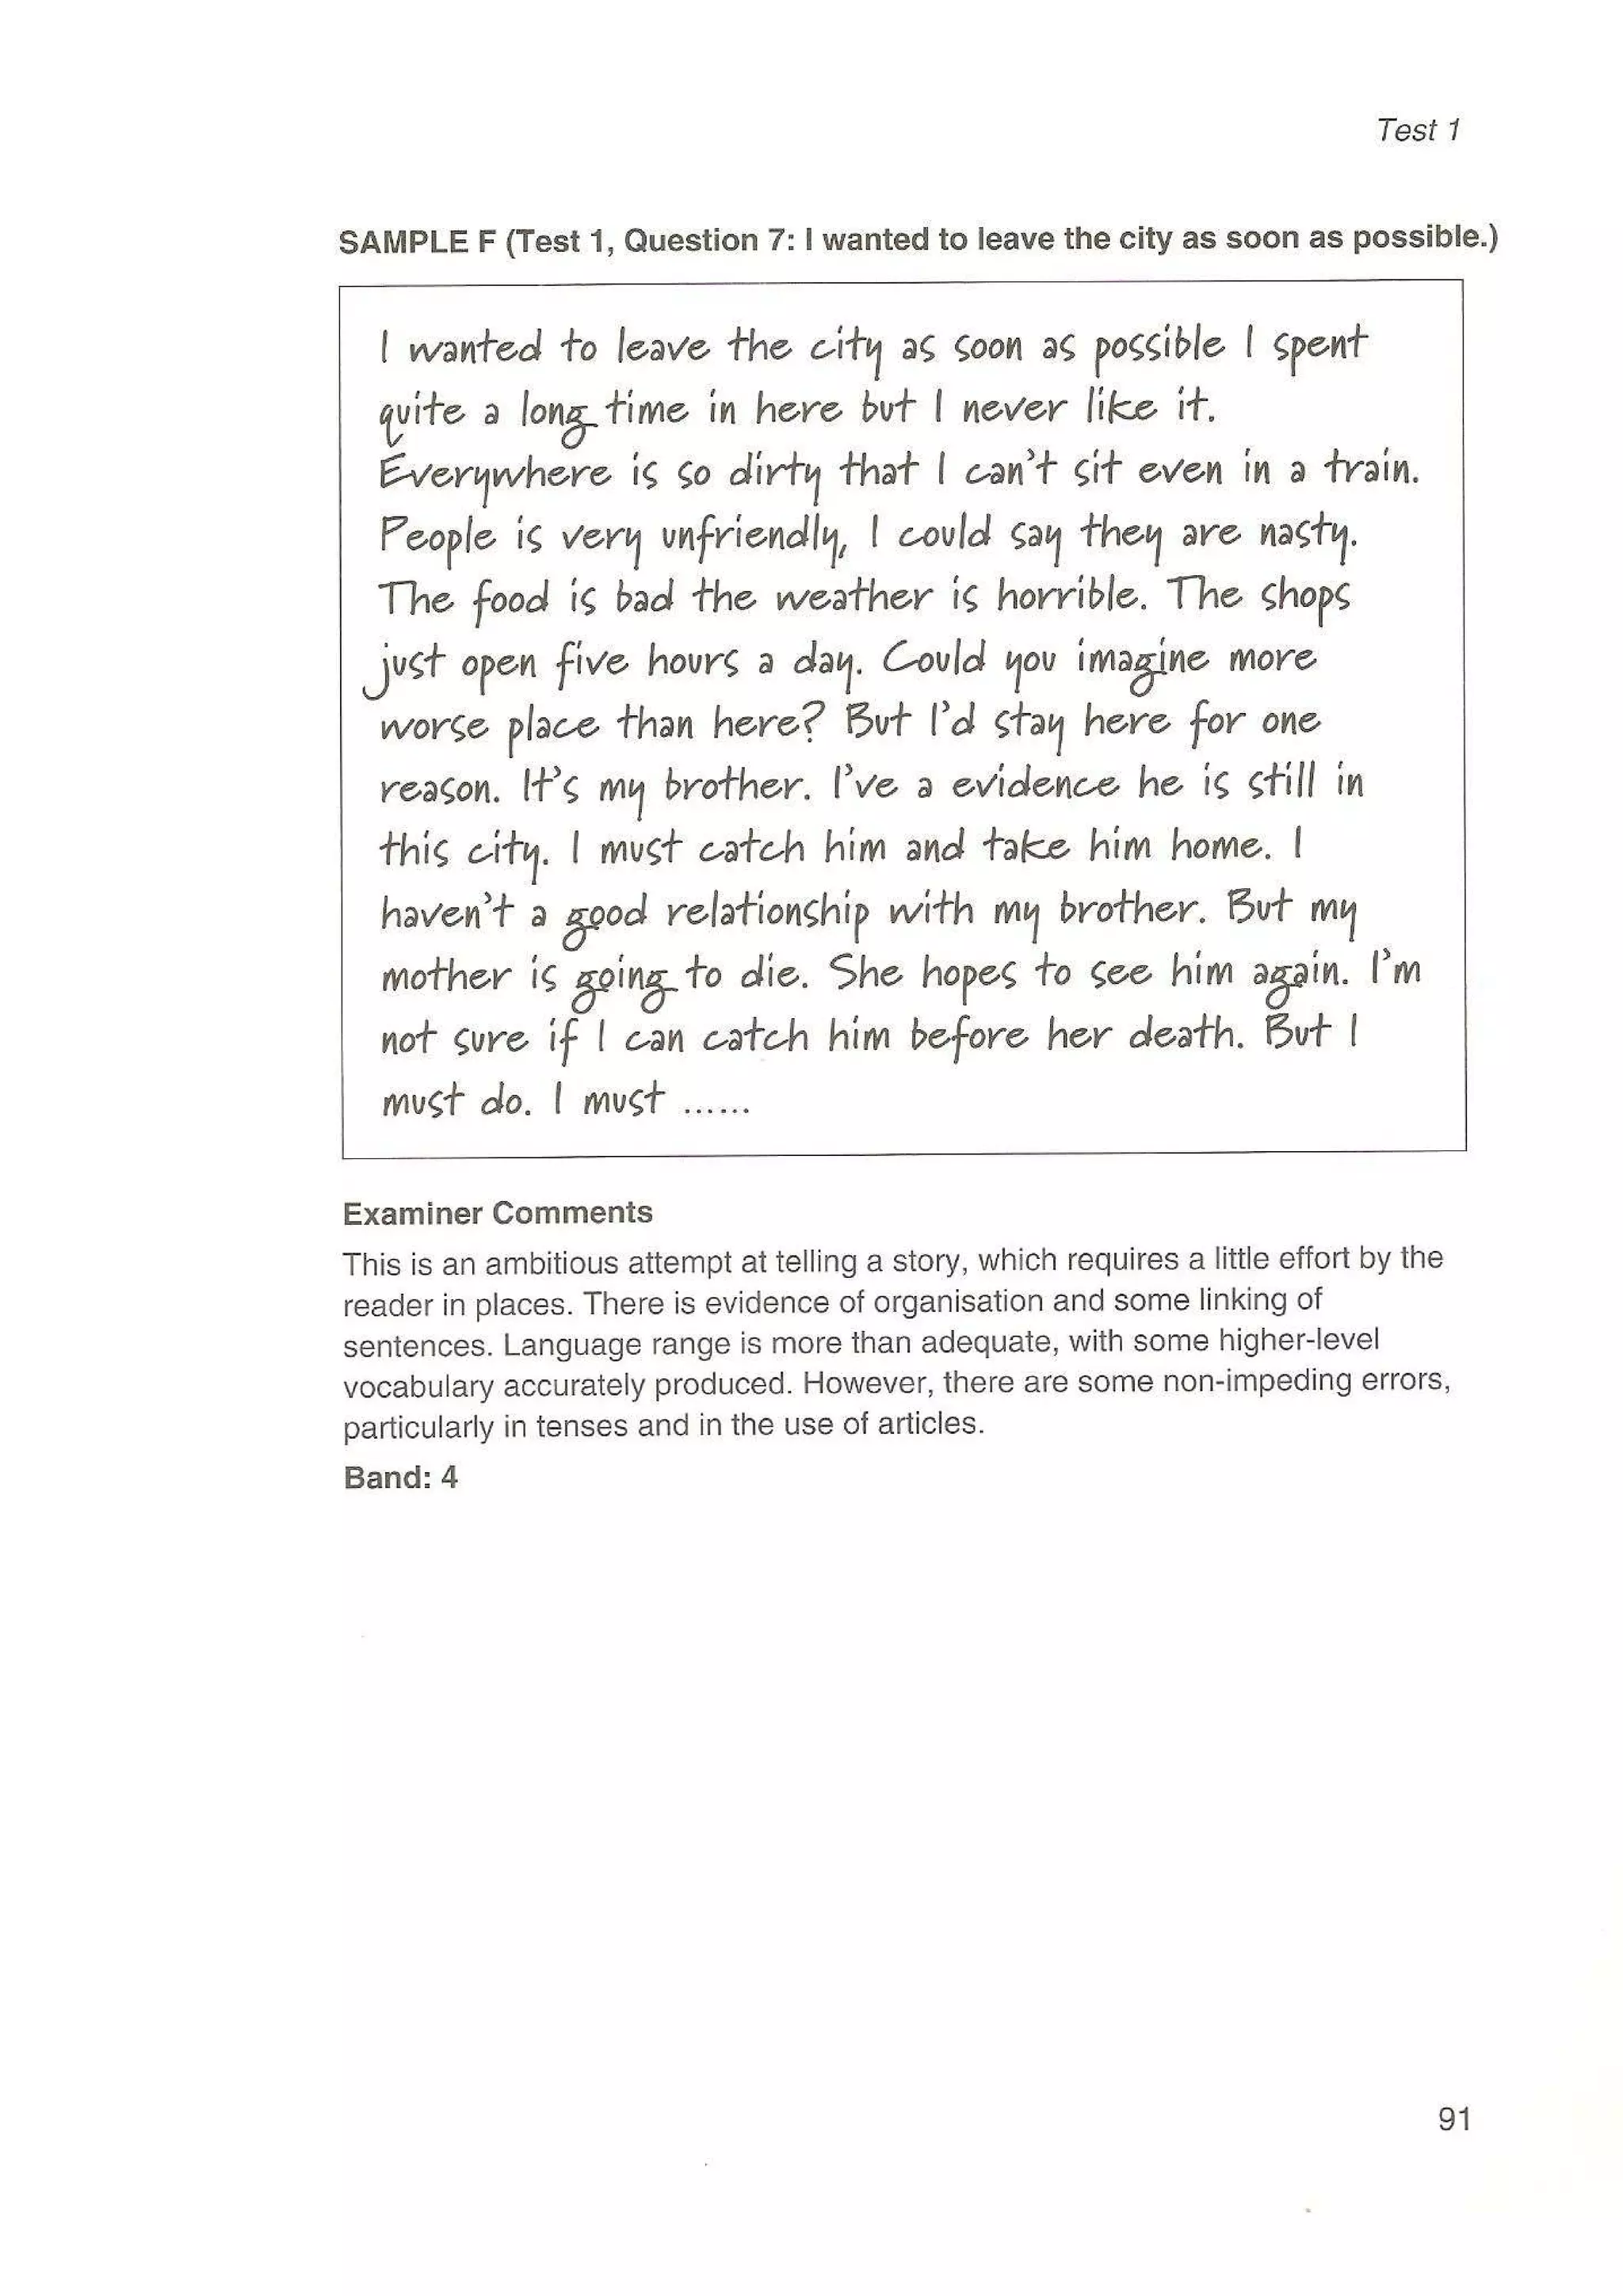 Test 1
SAMPLE F (Test 1, Question 7: I wanted to leave the city as soon as possible.)
I wanted to leave the city as soon as possible I spent
quite a long time in here but I never like it.
Everywhere is so dirty that I can't sit even in a train.
People is very unfriendly, I could say they are nasty.
The food is bad the weather is horrible. The shops
just open five hours a day. Could you imagine more
worse place than here? But I'd stay here for one
reason. It's my brother. I've a evidence he is still in
this city. I must catch him and take him home. I
haven't a good relationship with my brother. But my
mother is going to die. She hopes to see him again. I'm
not sure if I can catch him before her death. But I
must do. I must ......
Examiner Comments
This is an ambitious attempt at telling a story, which requires a little effort by the
reader in places. There is evidence of organisation and some linking of
sentences. Language range is more than adequate, with some higher-level
vocabulary accurately produced. However, there are some non-impeding errors,
particularly in tenses and in the use of articles.
Band: 4
91